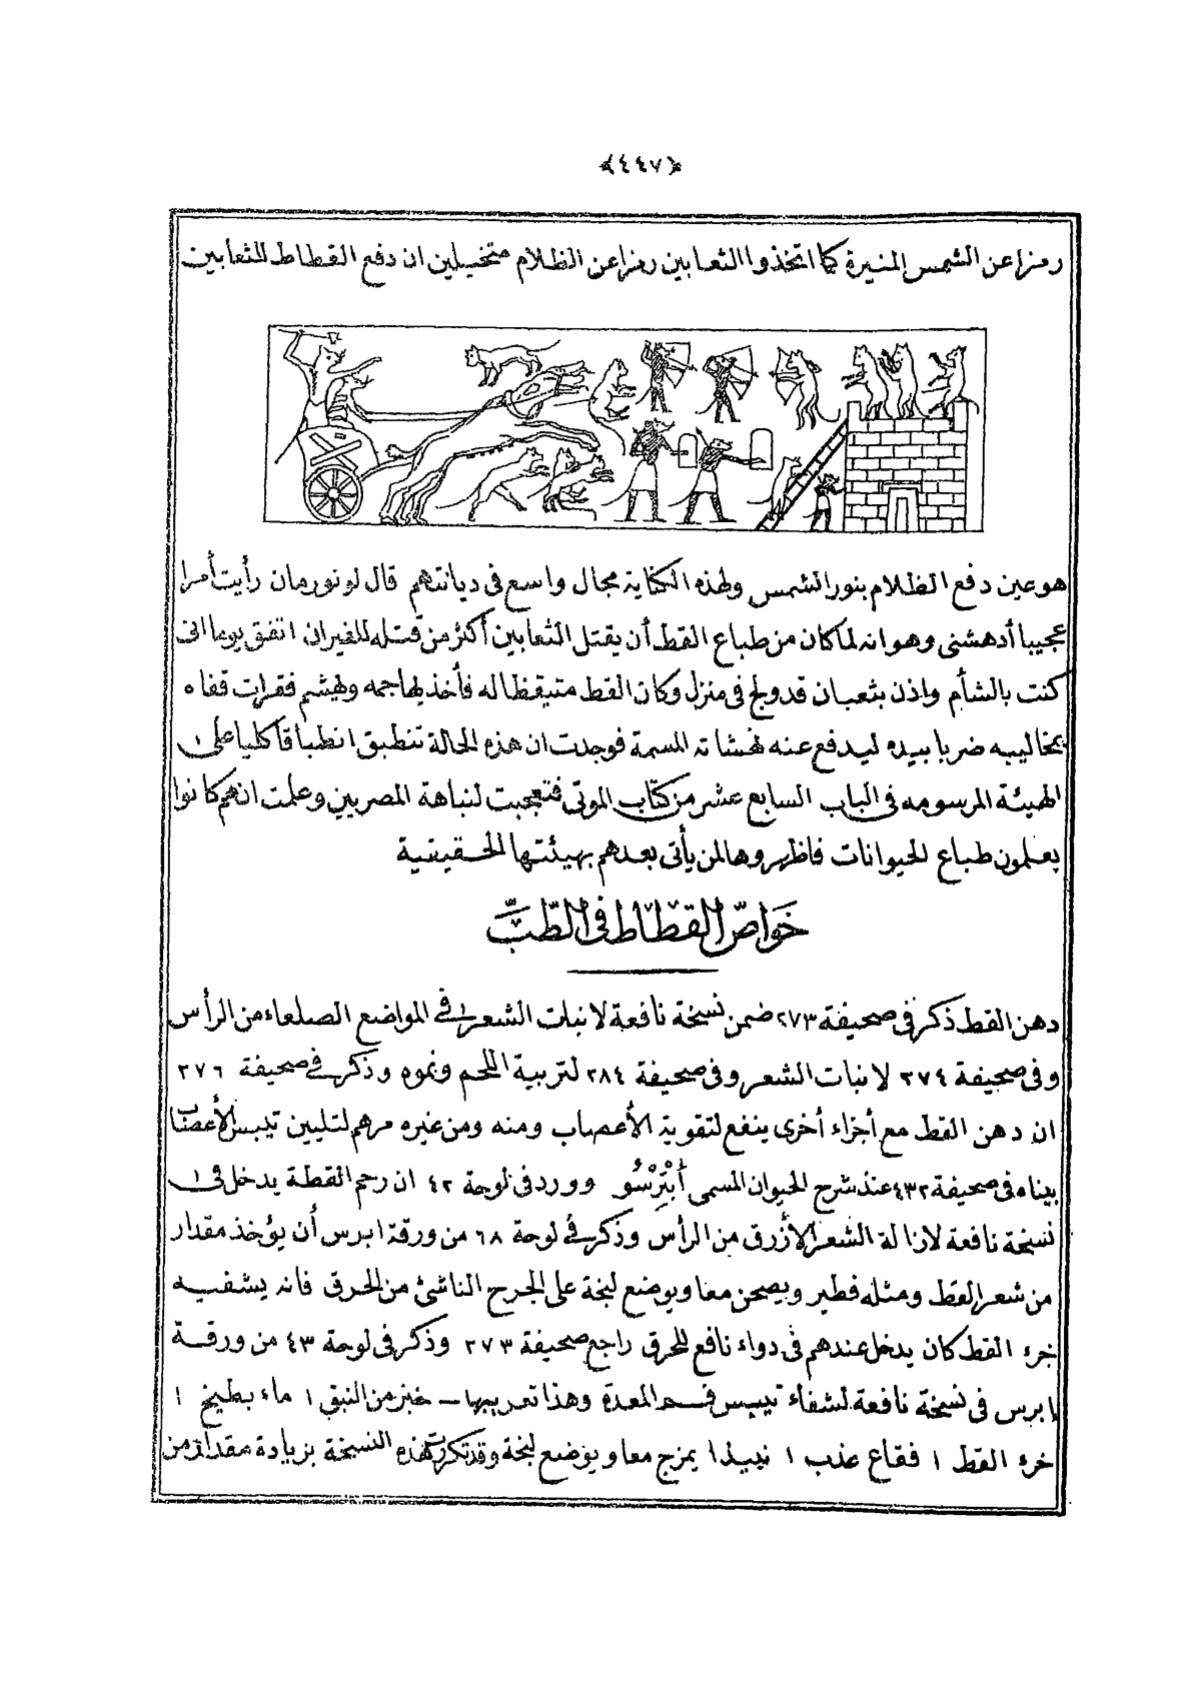 ﴿٤٤٧﴾
رمزا عن الشمس المنيرة كما اتخذوا الثعابين رمزا عن الظلام متخيلين ان دفع القطاط للثعابين
هو عين دفع الظلام بنور الشمس ولهذه الكناية مجال واسع فى ديانتهم قال لونورمان رأيت أمرا
عجيبا أدهشنى وهو انه لما كان من طباع القط أن يقتل الثعابين أكثر من قتله للفيران اتفق يوما انى
كنت بالشأم واذن بثعبان قد ولج فى منزل وكان القط متيقظا له فأخذ يهاجمه ويهشم فقرات قفاه
بمخاليبه ضربا بيده ليدفع عنه نهشاته المسمة فوجدت ان هذه الحالة تنطبق انطباقا كليا على ا
لهيئة المرسومه فى الباب السابع عشر من كتاب الموتى فتعجبت لنباهة المصريين وعلمت انهم كانوا
يعلمون طباع الحيوانات فاظهروها لمن يأتى بعدهم بهيئتها الحقيقية
خَواصّ القطاط فى الطّبّ
دهن القط ذكر فى صحيفة ٢٧٣ ضمن نسخة نافعة لانبات الشعر فى المواضع الصلعاء من الرأس
وفى صحيفة ٢٧٤ لانبات الشعر وفى صحيفة ٢٨٤ لتربية اللحم ونموه وذكر فى صحيفة ٢٧٦
ان دهن القط مع أجزاء أخرى ينفع لتقوية الأعصاب ومنه ومن غيره مرهم لتليين تيبس الأعصاب
بيناه فى صحيفة ٤٣٢ عند شرح الحيوان المسمى أَبْتِرْسُو وورد فى لوحة ٤٢ ان رحم القطة يدخل فى ا
نسخة نافعة لازالة الشعر الأزرق من الرأس وذكر فى لوحة ٦٨ من ورقة ابرس أن يؤخذ مقدار
من شعر القط ومثله فطير ويصحن معا ويوضع لبخة على الجرح الناشئ من الحرق فانه يشفيه
خرء القط كان يدخل عندهم فى دواء نافع للحرق راجع صحيفة ٢٧٣ وذكر فى لوحة ٤٣ من ورقة
ابرس فى نسخة نافعة لشفاء تيبيس فم المعدة وهذا تعريبها — خبز من النبق ١ ماء بطيخ ١
خرء القط ١ فقاع عذب ١ نبيذ ١ يمزج معا ويوضع لبخة وقد تكررت هذه النسخة بزيادة مقدار من